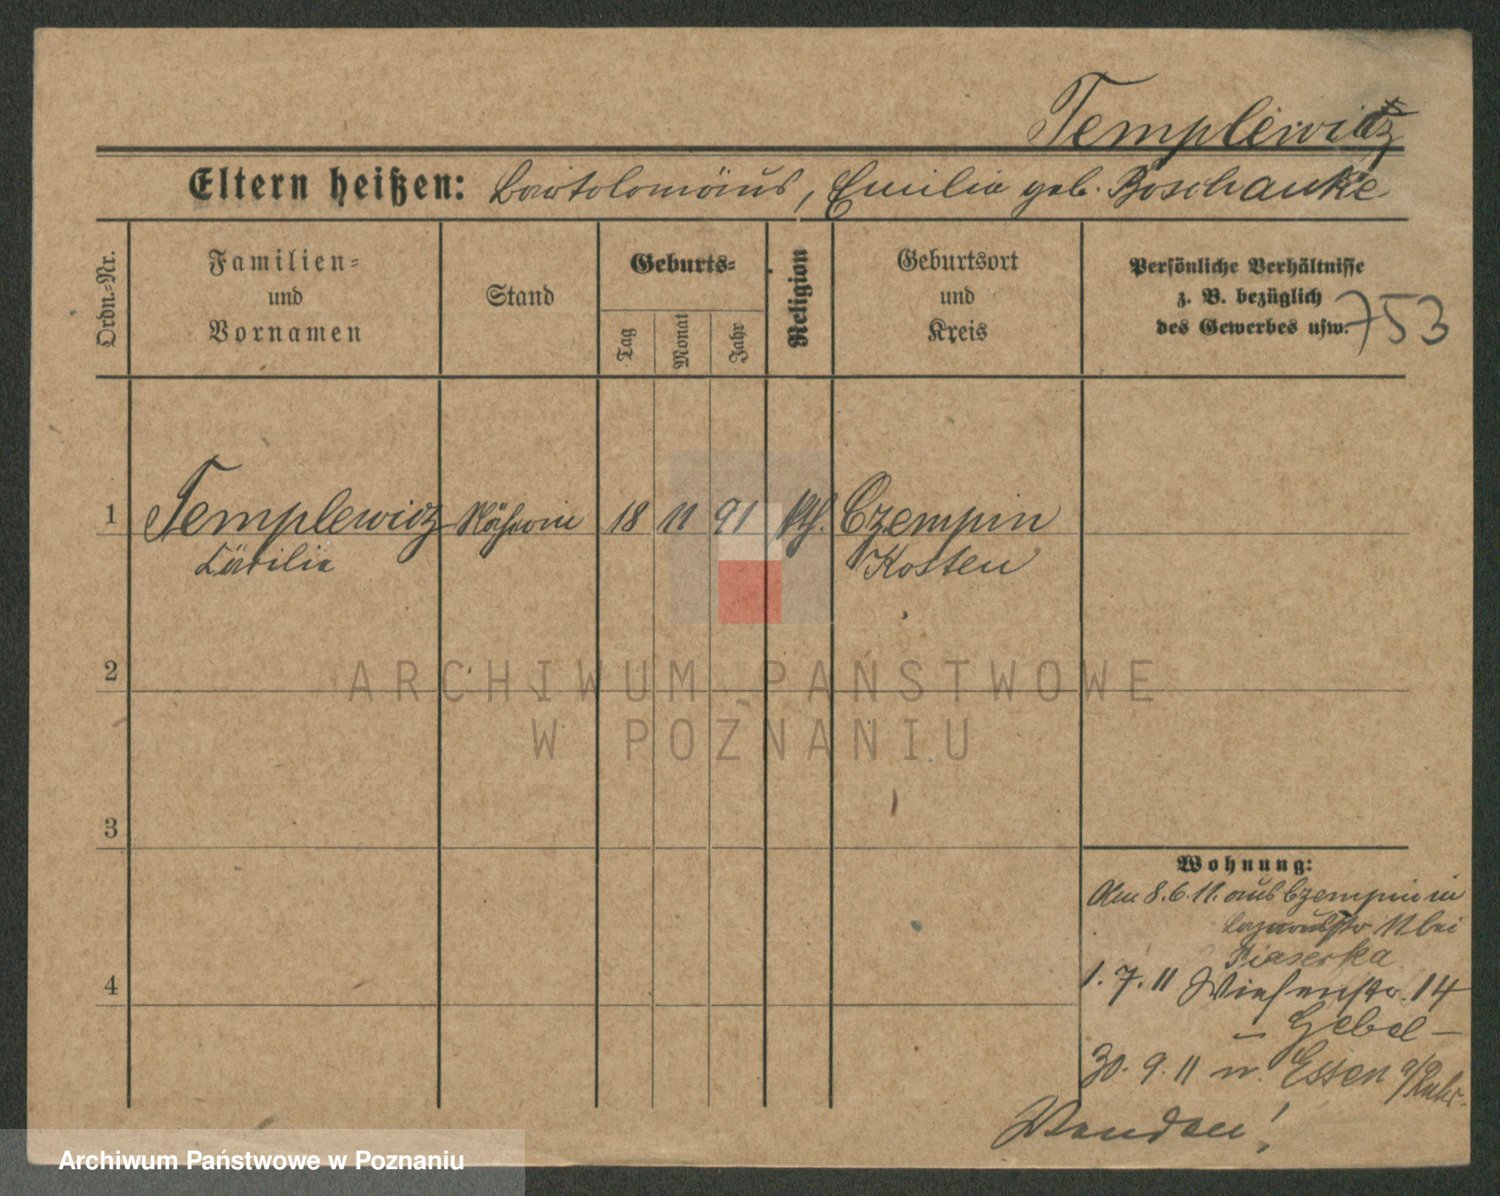 Templewicz
Eltern heißen: Bartolomäus, Emilia geb. Boschanke
Ordn.-Nr.
Familien-
und
Vornamen
Stand
Geburts-
Tag
Monat
Jahr
Religion
Geburtsort
und
Kreis
Persönliche Verhältnisse
z. B. bezüglich
des Gewerbes usw.
753
1 Templewicz Näherin 18 11 91 kth. Czempin
Cäcilia Kosten
2
ARCHIWUM PAŃSTWOWE
W POZNANIU
3
Wohnung:
Am 8.6.11. aus Czempin in
Lazarusstr 11 bei
Piaserka
4
1.7.11 Wiesenstr. 14
– Gebel –
30.9.11 n. Essen a/Ruhr.
Wenden!
Archiwum Państwowe w Poznaniu